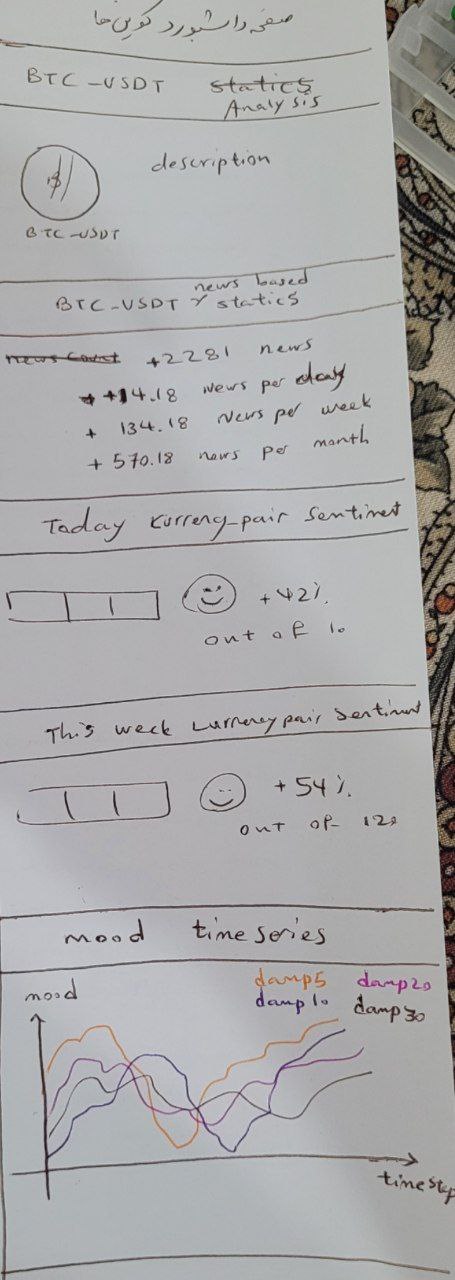 صفحه داشبورد کوین ها
BTC-USDT statics
Analysis
$
description
BTC-USDT
news based
BTC-USDT statics
news count +2281 news
+14.18 news per day
+ 134.18 news per week
+ 570.18 news per month
Today Kurreny-pair Sentiment
+42%
out of 10
This week currency pair Sentiment
+54%
out of 120
mood time series
mood
damp5 damp20
damp10 damp30
time step